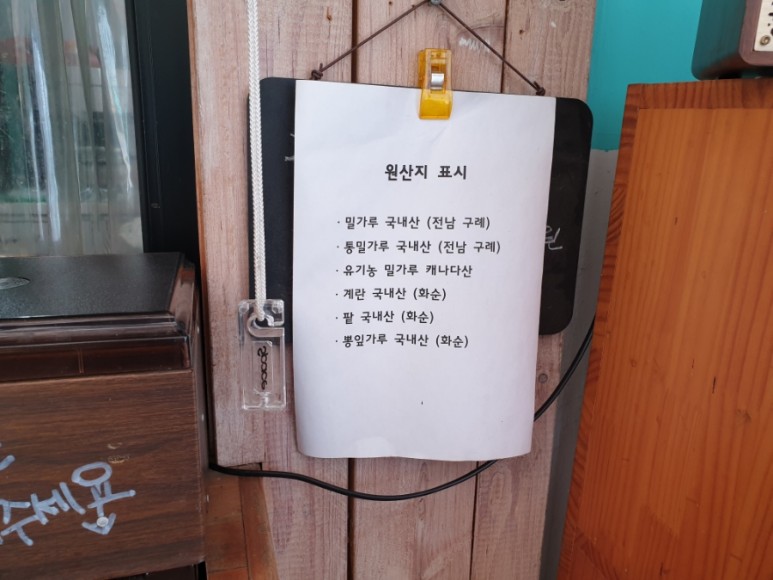 원산지 표시
· 밀가루 국내산 (전남 구례)
· 통밀가루 국내산 (전남 구례)
· 유기농 밀가루 캐나다산
· 계란 국내산 (화순)
· 팥 국내산 (화순)
· 뽕잎가루 국내산 (화순)
원
주세요